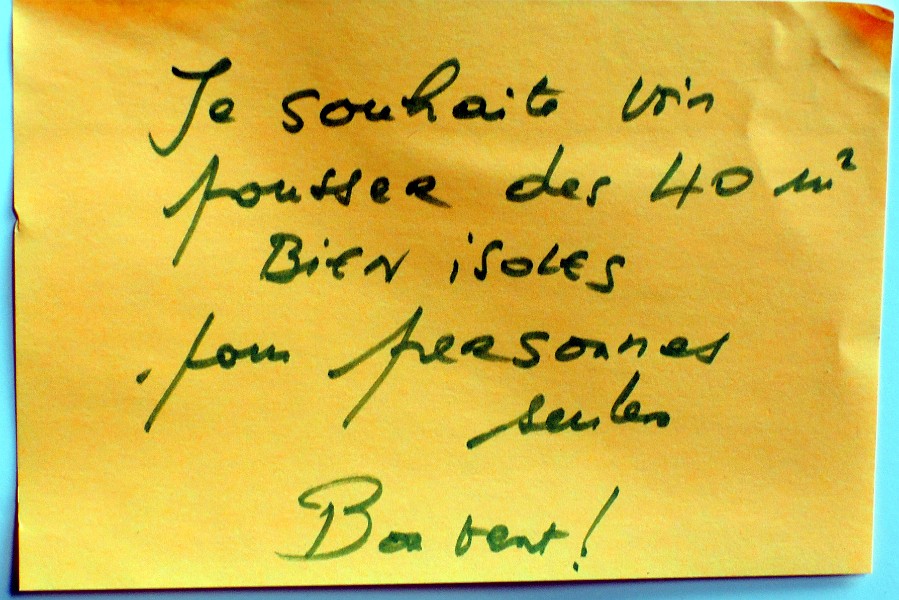 Je souhaite voir
pousser des 40 m²
BIEN isoles
pour personnes
seules
Bon vent !